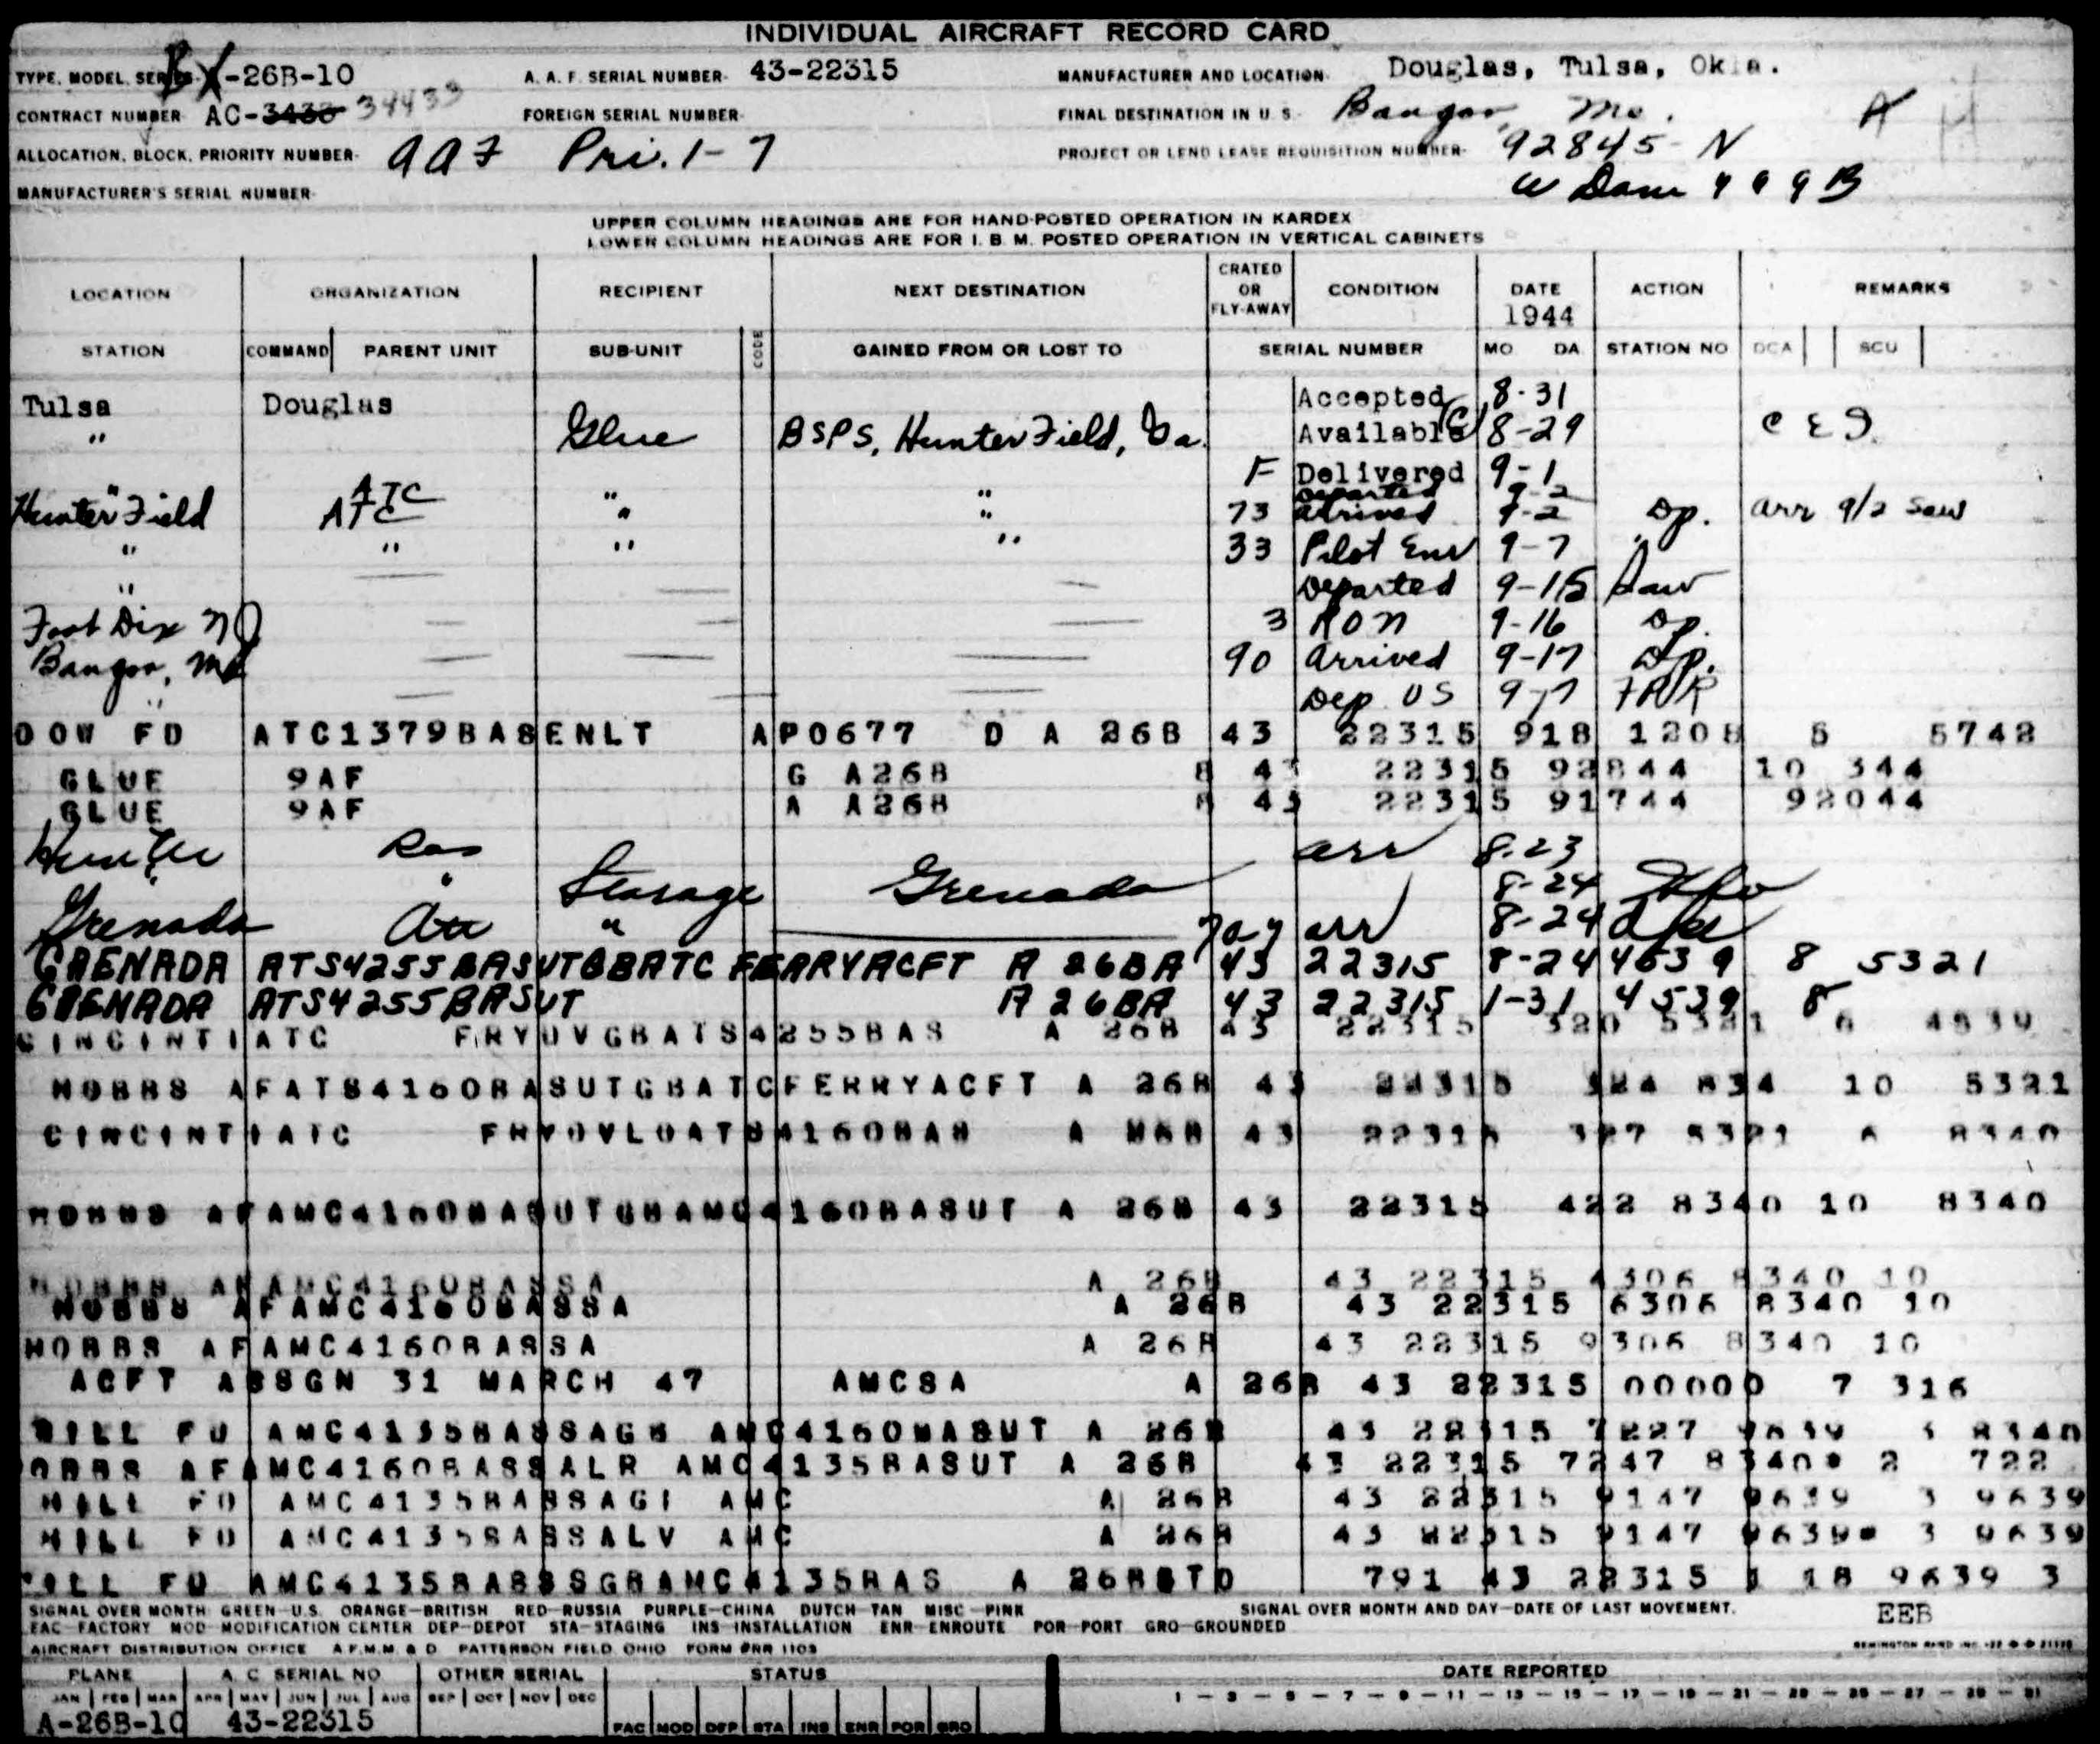 INDIVIDUAL AIRCRAFT RECORD CARD
TYPE, MODEL, SERIES -26B-10 A. A. F. SERIAL NUMBER- 43-22315 MANUFACTURER AND LOCATION- Douglas, Tulsa, Okla.
CONTRACT NUMBER AC-3430 34433 FOREIGN SERIAL NUMBER- FINAL DESTINATION IN U. S.- Bangor, Me.
ALLOCATION, BLOCK, PRIORITY NUMBER- AAF Pri. 1-7 PROJECT OR LEND LEASE REQUISITION NUMBER- 92845-N
MANUFACTURER'S SERIAL NUMBER-
UPPER COLUMN HEADINGS ARE FOR HAND-POSTED OPERATION IN KARDEX
LOWER COLUMN HEADINGS ARE FOR I. B. M. POSTED OPERATION IN VERTICAL CABINETS
LOCATION ORGANIZATION RECIPIENT NEXT DESTINATION CRATED OR FLY-AWAY CONDITION DATE 1944 ACTION REMARKS
STATION COMMAND PARENT UNIT SUB-UNIT CODE GAINED FROM OR LOST TO SERIAL NUMBER MO DA STATION NO DCA SCU
Tulsa Douglas Accepted 8-31
" Glue BSPS, Hunter Field, Ga. Available 8-29
" ATC " " F Delivered 9-1
Departed 9-2
Hunter Field ATC " " 73 Arrived 9-2 Dp. arr 9/2 Saw
" " " " 33 Pilot Enr 9-7 "
" Departed 9-15 Saw
Fort Dix NJ 3 RON 9-16 Dp.
Bangor, Me 90 Arrived 9-17 Dp.
" Dep US 9-17
DOW FD ATC1379BASENLT APO677 D A 26B 43 22315 918 1208 5 5742
GLUE 9AF G A26B B 43 22315 92844 10 344
GLUE 9AF A A26B B 43 22315 91744 92044
Hunter arr 8-23
" Storage Grenada 8-24
Grenada " arr 8-24
GRENADA ATS4255BASUTGBATC FERRYACFT A 26BA 43 22315 8-24 4539 8 5321
GRENADA ATS4255BASUT A 26BA 43 22315 1-31 4539 8
CINCINTI ATC FRYDVGBATS4255BAS A 26B 43 22315 320 5321 6 4539
HOBBS AFATS4160BASUTGBATCFERRYACFT A 26B 43 22315 324 834 10 5321
CINCINTI ATC FRYDVLOATS4160BAS A 26B 43 22315 327 5321 6 8340
HOBBS AFAMC4160BASUTGBAMC4160BASUT A 26B 43 22315 422 8340 10 8340
HOBBS AFAMC4160BASSA A 26B 43 22315 4306 8340 10
HOBBS AFAMC4160BASSA A 26B 43 22315 6306 8340 10
HOBBS AFAMC4160BASSA A 26B 43 22315 9306 8340 10
ACFT ASSGN 31 MARCH 47 AMCSA A 26B 43 22315 00000 7 316
HILL FD AMC4135BASSAGB AMC4160BASUT A 26B 43 22315 7227 9639 3 8340
OBBS AFAMC4160BASSALR AMC4135BASUT A 26B 43 22315 7247 8340* 2 722
HILL FD AMC4135BASSAGI AMC A 26B 43 22315 9147 9639 3 9639
HILL FD AMC4135BASSALV AMC A 26B 43 22315 9147 9639* 3 9639
HILL FD AMC4135BASSSGBAMC4135BAS A 26B 791 43 22315 1 18 9639 3
SIGNAL OVER MONTH GREEN-U.S. ORANGE-BRITISH RED-RUSSIA PURPLE-CHINA DUTCH-TAN MISC-PINK SIGNAL OVER MONTH AND DAY-DATE OF LAST MOVEMENT. EEB
FAC-FACTORY MOD-MODIFICATION CENTER DEP-DEPOT STA-STAGING INS-INSTALLATION ENR-ENROUTE POR-PORT GRO-GROUNDED
AIRCRAFT DISTRIBUTION OFFICE A.F.M.M. & D. PATTERSON FIELD, OHIO FORM #NR 1103
PLANE A. C. SERIAL NO OTHER SERIAL STATUS DATE REPORTED
JAN FEB MAR APR MAY JUN JUL AUG SEP OCT NOV DEC 1 - 3 - 5 - 7 - 9 - 11 - 13 - 15 - 17 - 19 - 21 - 23 - 25 - 27 - 29 - 31
A-26B-10 43-22315 FAC MOD DEP STA INS ENR POR GRO